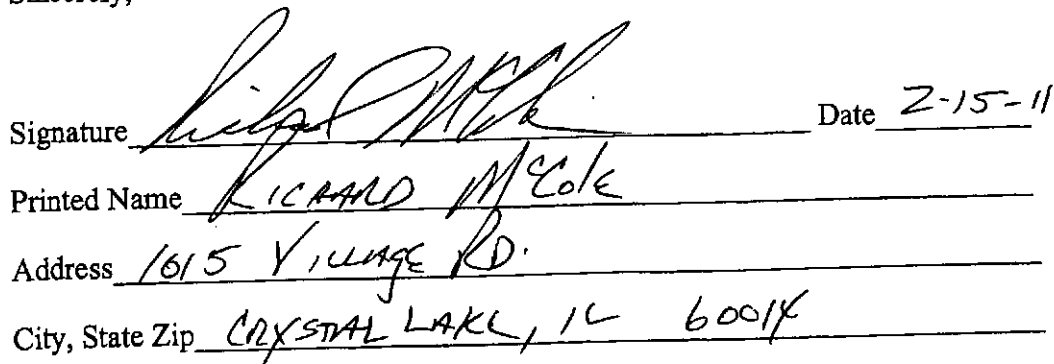 Sincerely,
Signature Richard McCole Date 2-15-11
Printed Name RICHARD McCole
Address 1615 VILLAGE RD.
City, State Zip CRYSTAL LAKE, IL 60014